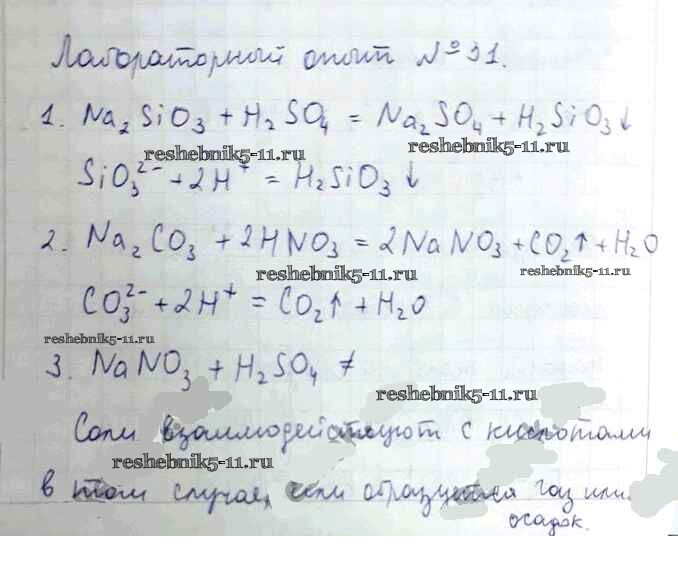 Лабораторный опыт №31.
1. Na₂SiO₃ + H₂SO₄ = Na₂SO₄ + H₂SiO₃↓
reshebnik5-11.ru reshebnik5-11.ru
SiO₃²⁻ + 2H⁺ = H₂SiO₃↓
2. Na₂CO₃ + 2HNO₃ = 2NaNO₃ + CO₂↑ + H₂O
reshebnik5-11.ru reshebnik5-11.ru
CO₃²⁻ + 2H⁺ = CO₂↑ + H₂O
reshebnik5-11.ru
3. NaNO₃ + H₂SO₄ ≠
reshebnik5-11.ru
Соли взаимодействуют с кислотами
reshebnik5-11.ru
в том случае, если образуется газ или
осадок.